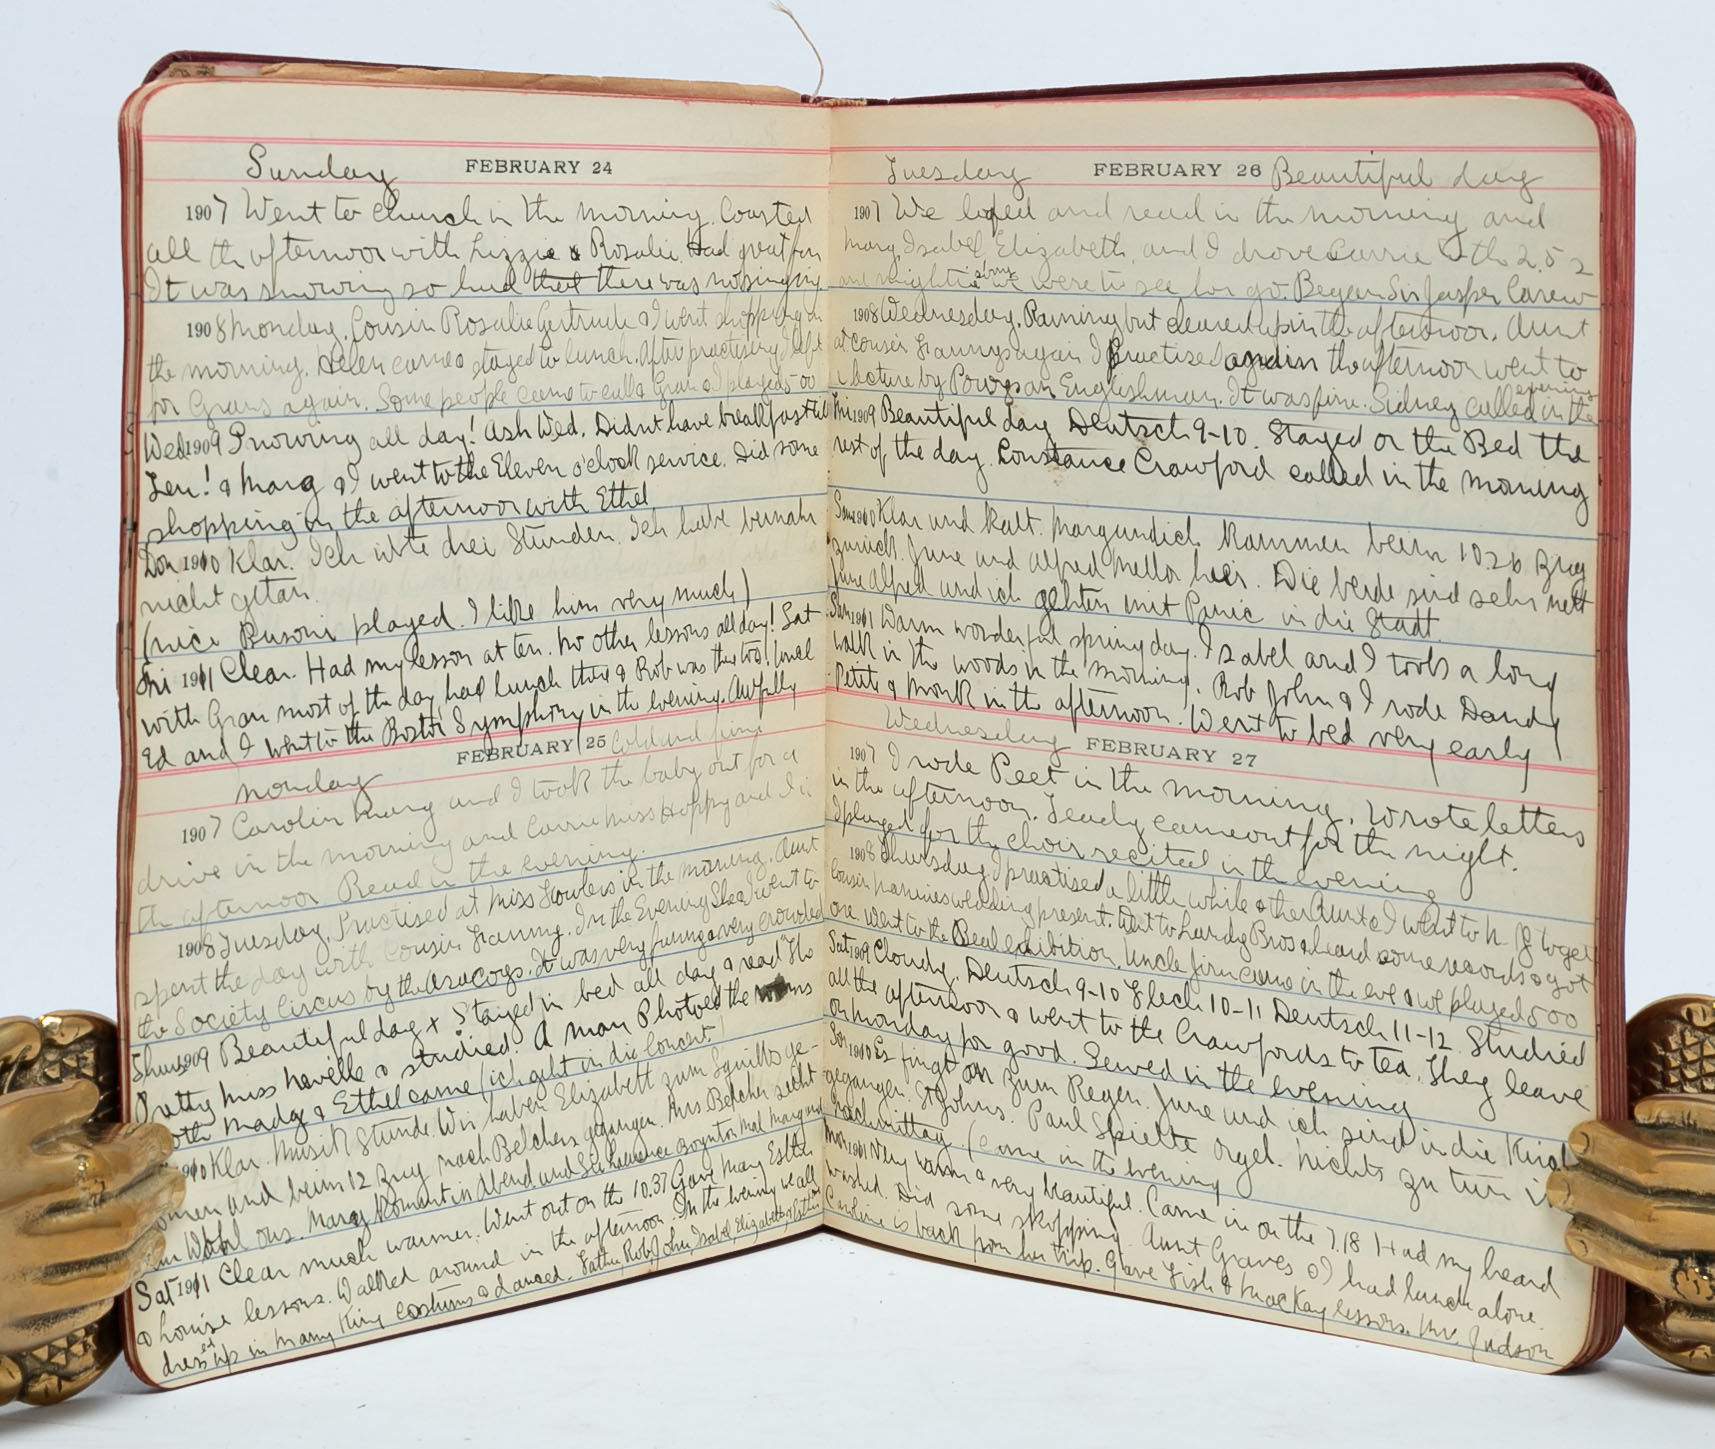 Sunday FEBRUARY 24
1907 Went to church in the morning. Coasted
all the afternoon with Lizzie & Rosalie. Had great fun
It was snowing so hard that there was no singing
1908 Monday. Cousin Rosalie Gertrude & I went shopping in
the morning. Helen came & stayed to lunch. After practising I left
for Grans again. Some people came to call & Gran & I played 500
Wed 1909 Snowing all day! Ash Wed. Didnt have breakfast till
Ten! & Marg & I went to the Eleven o'clock service. Did some
shopping in the afternoon with Ethel
Don 1910 Klar. Ich übte drei Stunden. Ich habe beinahe
nicht getan.
(nice Busoni played. I like him very much)
Fri 1911 Clear. Had my lesson at ten. No other lessons all day! Sat
with Gran most of the day, had lunch there & Rob was there too!
Ed and I went to the Boston Symphony in the evening. Awfully
FEBRUARY 25 Cold and fine
Monday
1907 Carolin Marg and I took the baby out for a
drive in the morning and Carrie Miss Hoppy and I in
the afternoon Read in the evening.
1908 Tuesday. Practised at Miss in the morning. Aunt
spent the day with Cousin Fanny. In the Evening She & I went to
the Society Circus by the It was very funny & very crowded
Thurs 1909 Beautiful day & Stayed in bed all day & read "The
Pretty Miss Neville & studied. A man Photoed the
both Madg & Ethel came (ich geht in die Concert)
1910 Klar. Musik Stunde. Wir haben Elizabeth zum ge-
nomen und beim 12 Zug nach Belchers gegangen. Mrs. Belcher sieht
Wohl aus. Marg kommt in Abend und Boynton Mal Marg und
Sat 1911 Clear much warmer. Went out on the 10.37 Gave Mary Esther
& Louise lessons. Walked around in the afternoon. In the evening we all
dressed up in many King costumes & danced. Father, Rob, John, Isabel, Elizabeth, & Esther
Tuesday FEBRUARY 26 Beautiful day
1907 We loafed and read in the morning and
Marg, Isabel, Elizabeth, and I drove Carrie to the 2.52
and mightie sorry we were to see her go. Began Sir Jasper Carew
1908 Wednesday. Raining but cleared up in the afternoon. Aunt
at Cousin Fannys again I Practised again in the afternoon went to
a lecture by Powys an Englishman. It was fine. Sidney called in the evening
Fri 1909 Beautiful day Deutsch 9-10. Stayed on the Bed the
rest of the day. Constance Crawford called in the morning
Sam 1910 Klar und kalt. Marg und ich kommen beim 10.26 Zug
zurück. June und Alfred Mellor hier. Die beide sind sehr nett
June Alfred und ich gehten mit Panic in die Stadt.
Sun 1911 Warm wonderful spring day. Isabel and I took a long
walk in the woods in the morning. Rob John & I rode Dandy
Petite & Monk in the afternoon. Went to bed very early
Wednesday FEBRUARY 27
1907 I rode Peet in the morning. Wrote letters
in the afternoon. Teady came out for the night.
I played for the choir recited in the evening
1908 Thursday. I practised a little while & then Aunt & I went to to get
Cousin Nannies wedding present. Went to Landy Bros & heard some records & got
one went to the Beal exibition. Uncle Jim came in the eve & we played 500
Sat 1909 Cloudy. Deutsch 9-10 Flech 10-11 Deutsch 11-12. Studied
all the afternoon & went to the Crawfords to tea. They leave
on Monday for good. Sewed in the evening
Son 1910 Es fingt an zum Regen. June und ich sind in die Kirche
gegangen. St Johns. Paul Spielte Orgel. Nichts zu tun in
Nachmittag. (Came in the evening
Mon 1911 Very warm & very beautiful. Came in on the 7.18 Had my head
washed. Did some shopping. Aunt Graves & I had lunch alone.
Caroline is back from her trip. Gave Fish & MacKay lessons. Mr. Judson